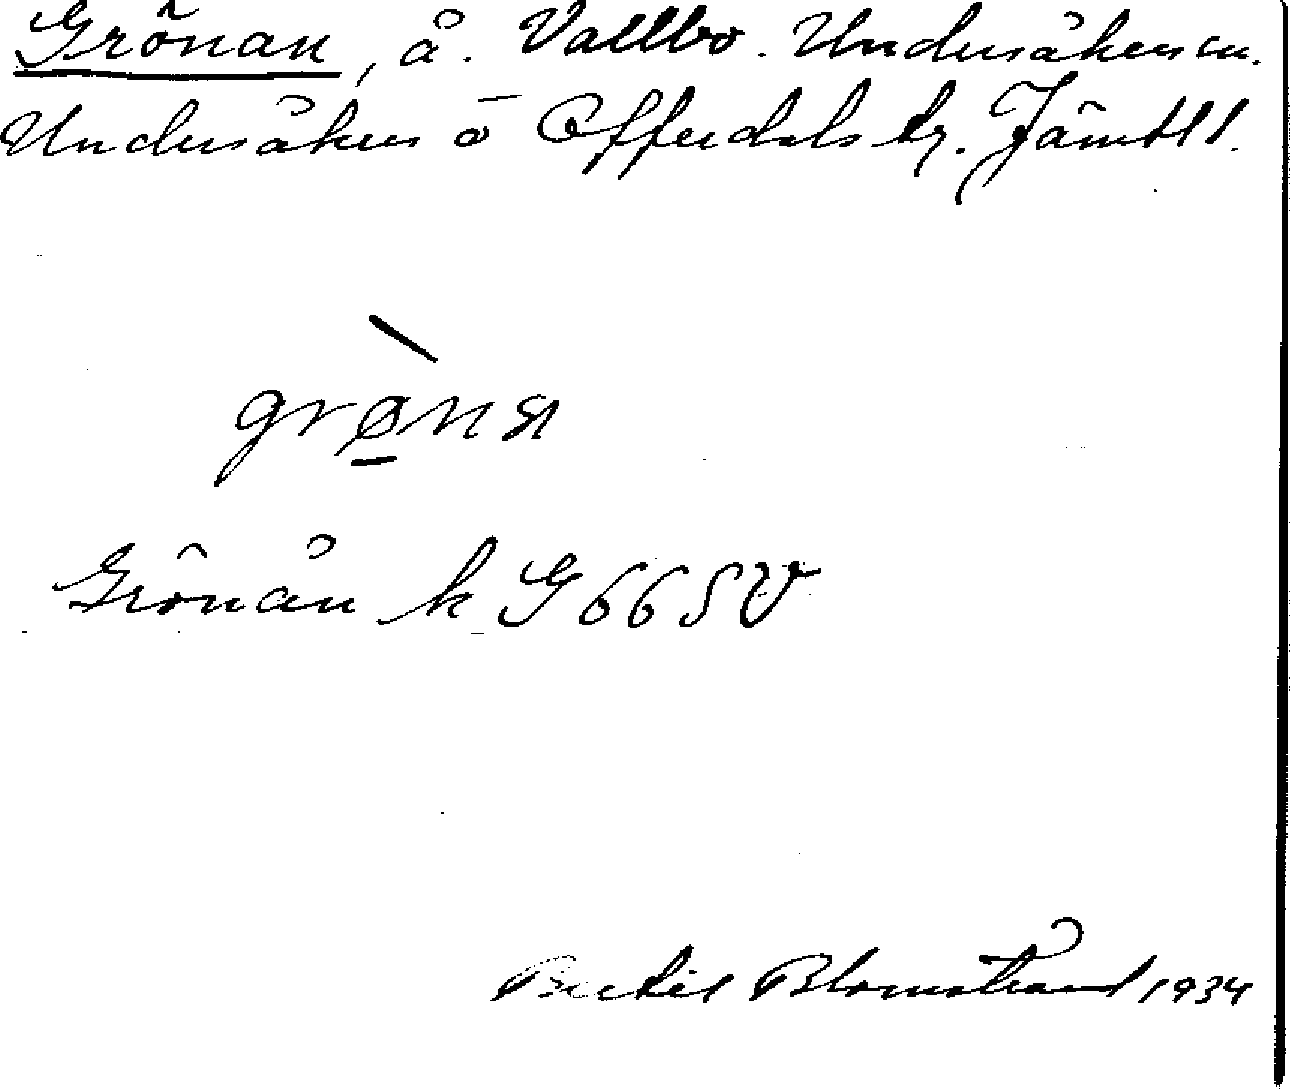 Grönan, å. Vallbo. Undersåkers sn.
Undersåkers o Offerdals tg. Jämtl.
Grönån k G 66 S V
Bertil Blomstrand 1934